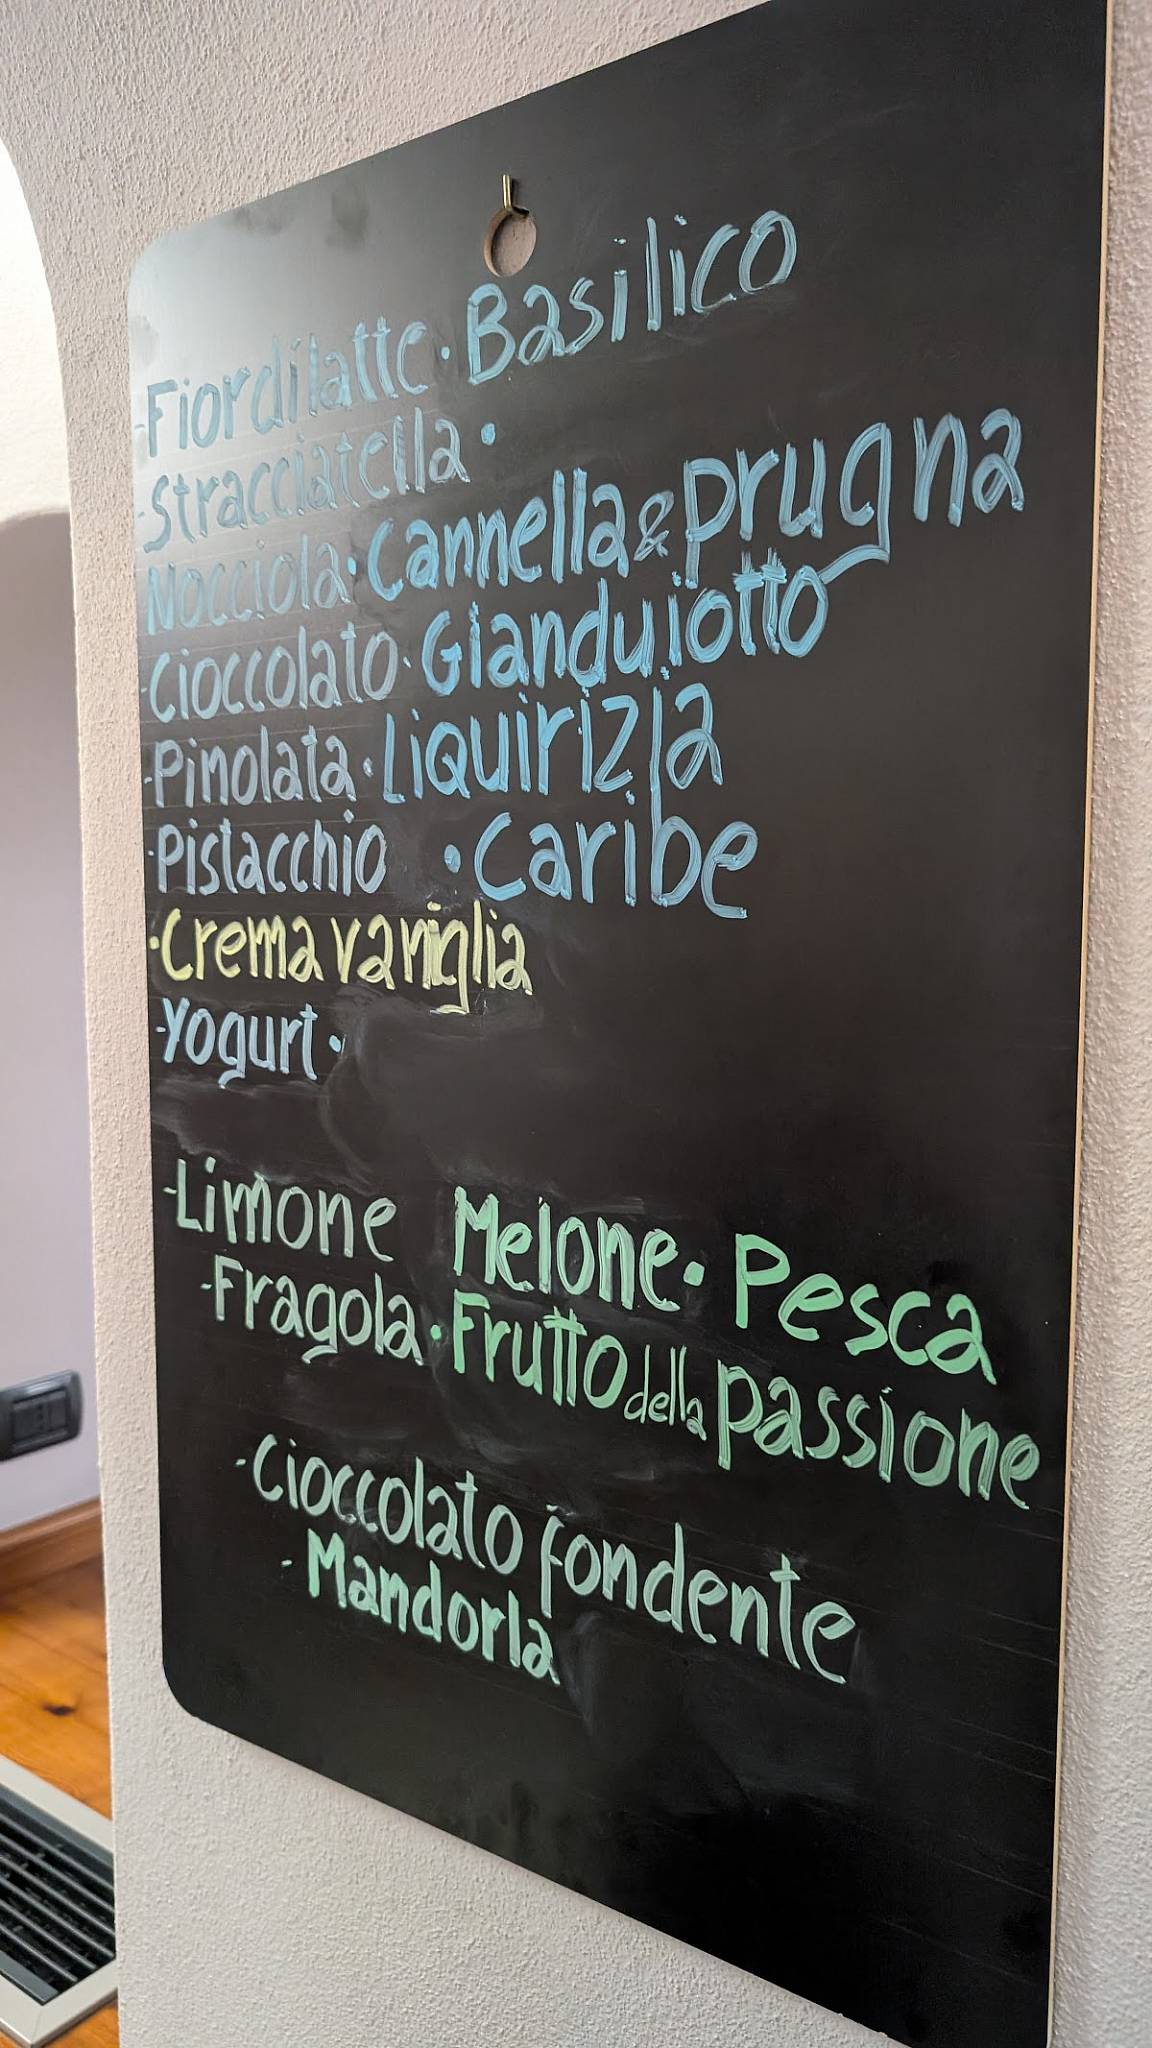 -Fiordilatte · Basilico
-Stracciatella ·
Nocciola · Cannella & prugna
-Cioccolato · Gianduiotto
-Pinolata · Liquirizia
·Pistacchio · Caribe
·Crema vaniglia
-Yogurt ·
-Limone Melone · Pesca
-Fragola · Frutto della passione
-Cioccolato fondente
-Mandorla